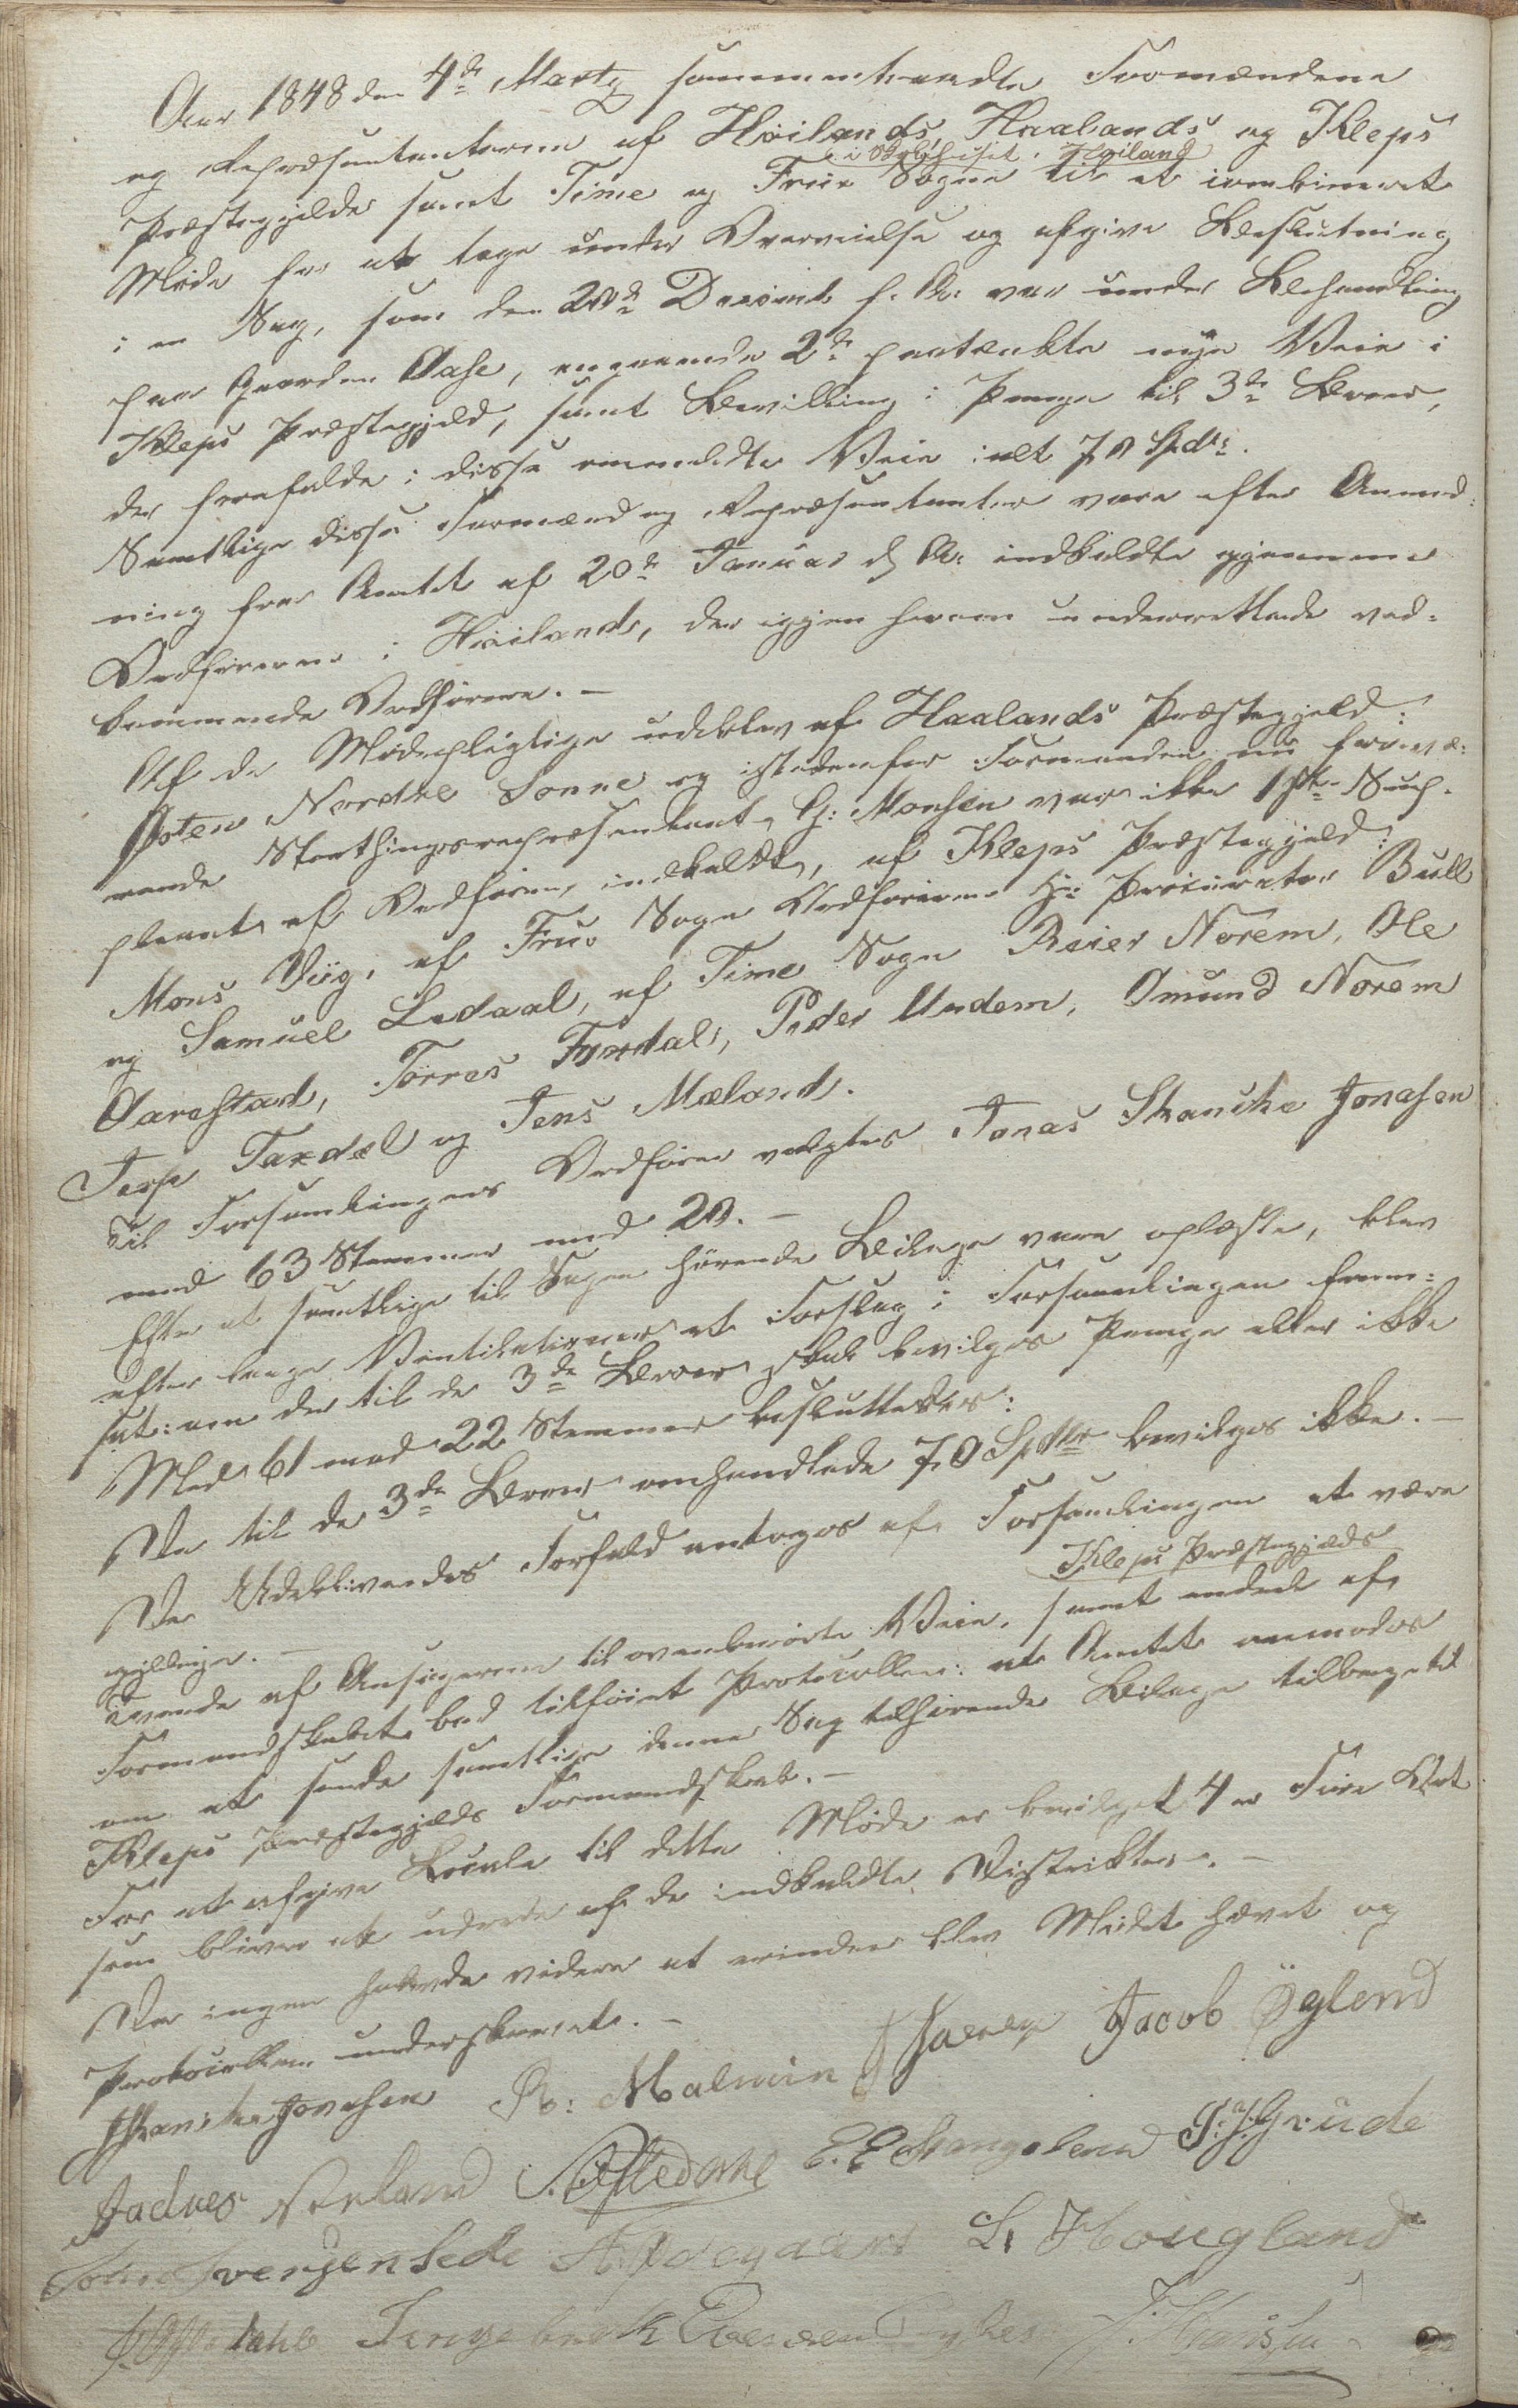 Aar 1848 den 4de Marty sammentraadte Formændene
og Repræsentanterne af Høilands, Haalands og Kleps
i Bylthuset, Høiland
Præstegjelde samt Time og Frue Sogne til et combineret
Møde for at tage under Overveielse og afgive Beslutning
i en Sag, som den 20de Decimb f. A. var under Behandling
paa Gaarden Aase, angaaende 2de paatænkte nye Veie i
Kleps Præstegjeld, samt Bevilling i Penge til 3de Broer,
der forefalde i disse anmeldte Veie ialt 70 Spdr.
Samtlige disse Formænd og Repræsentanter vare efter Anmod-
ning fra Amtet af 20de Januar d. A. indkaldte gjennem
Ordføreren i Høiland, der igjen herom underrettede ved-
kommende Ordførere. –
Af de Mødepligtige udeblev af Haalands Præstegjeld:
Osten Nordre Sonne og istedenfor Formanden nu frave-
rende Storthingsrepræsentant G: Monsen var ikke 1ste Sup-
pleant af Ordføreren indkaldt, af Kleps Præstegjeld:
Mons Viig, af Frue Sogn Ordføreren Hr: Procurator Bull
og Samuel Ledaal, af Time Sogn Reier Norem, Ole
Aarestad, Torres Fosdal, Peder Undem, Omund Norem
Terje Taxdal og Jens Mæland.
Til Forsamlingens Ordfører valgtes Jonas Skancke Jonasen
med 63 Stemmer mod 20. –
Efter at samtlige til Sagen hørende Bilage vare oplæste, blev
efter lange Ventilationer et Forslag i Forsamlingen frem-
sat: om der til de 3de Broer skal bevilges Penge eller ikke
Med 61 mod 22 Stemmer besluttedes:
De til de 3de Broer omhandlede 70 Spdlr bevilges ikke. –
De Udeblivendes Forfald antoges af Forsamlingen at være
gyldige. –
Kleps Præstegjelds
Tvende af Ansøgerne til ovenberørte Veie, samt endeel af
Formandskabet bad tilføiet Protocollen: at Amtet anmodes
om at sende samtlige denne Sag tilhørende Bilage tilbage til
Kleps Præstegjelds Formandskab. –
For at afgive Locale til dette Møde er bevilget 4 er Fire Ort
som bliver at udrede af de indkaldte Distrikter. –
Da ingen havde videre at erindre blev Mødet hævet og
Protocollen underskrevet. –
JSkancke Jonasen R: Malmin Jacob Øglend
Aadnes Nerland E. E. Stangeland T. J. Grude
Sverjensede L. Hougland
Tengesdal